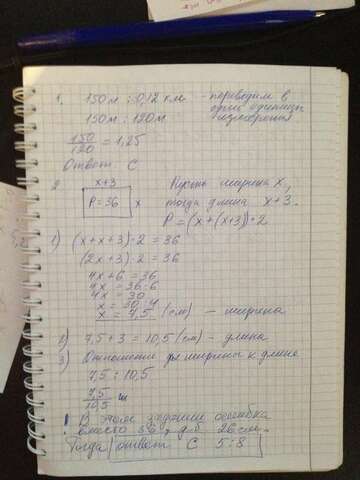 1. 150 м : 0,12 км - переводим в
одни единицы
150 м : 120 м измерения
150/120 = 1,25
Ответ: С
2. x+3
P = 36 x
Пусть ширина x,
тогда длина x+3.
P = (x+(x+3))·2
1) (x+x+3)·2 = 36
(2x+3)·2 = 36
4x+6 = 36
4x = 36-6
4x = 30
x = 30:4
x = 7,5 (см) - ширина
2) 7,5+3 = 10,5 (см) - длина
3) Отношение ширины к длине
7,5 : 10,5
7,5/10,5
! В этом задании ошибка
вместо 36, д.б. 26 см.
Тогда ответ С 5:8